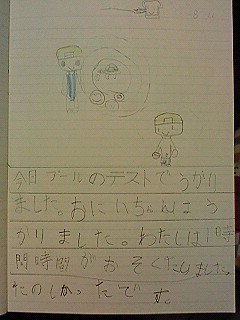 今日プールのテストでうかり
ました。おにいちゃんはう
かりました。わたしは1時
間時間がおそくなりました。
たのしかったです。